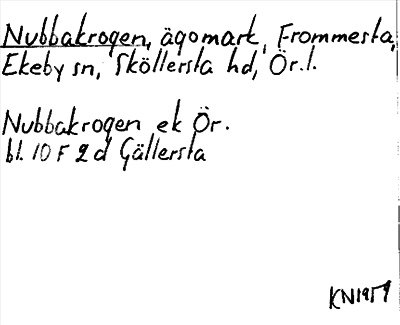 Nubbakrogen, ägomark, Frommesta,
Ekeby sn, Sköllersta hd, Ör.l.
Nubbakrogen ek Ör.
bl. 10 F 2 d Gällersta
KN1959